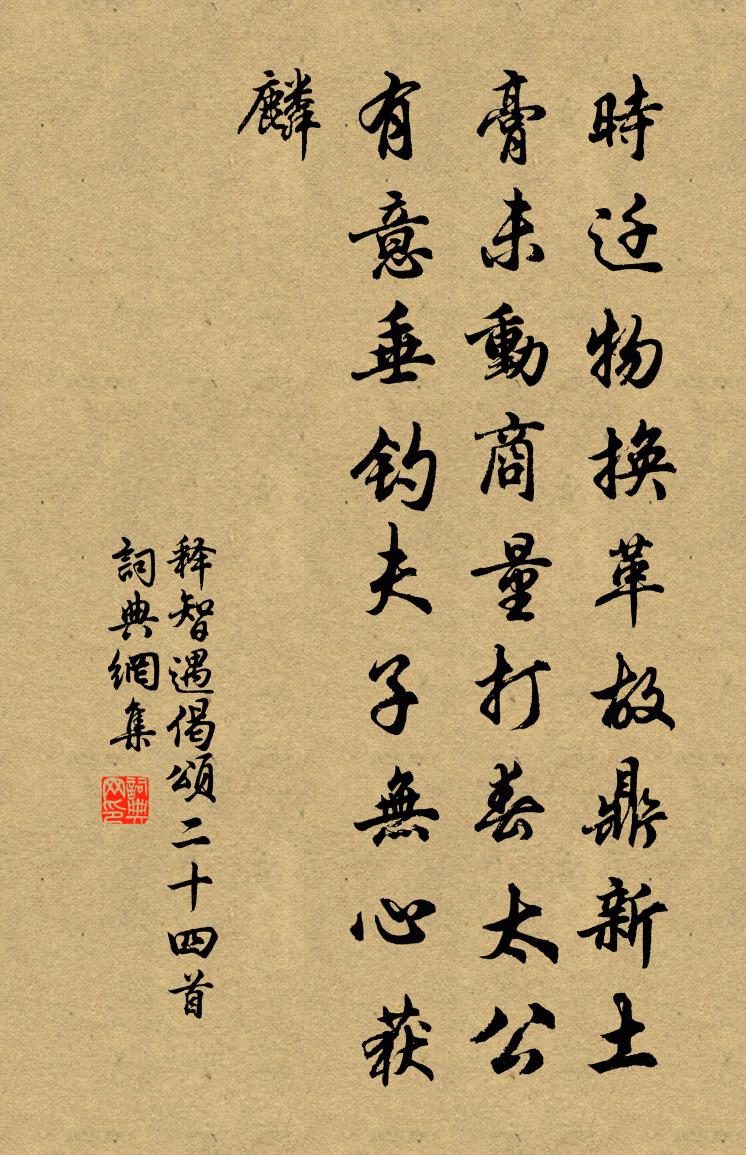 時迁物換革故鼎新土
膏未動商量打春太公
有意垂钓夫子無心获
麟
释智遇偈頌二十四首
詞典網集
詞典网印